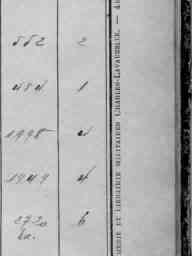 552 2
484 1
1998 4
1949 4
2720 6
MERIE ET LIBRAIRIE MILITAIRES CHARLES-LAVAUZELLE. —